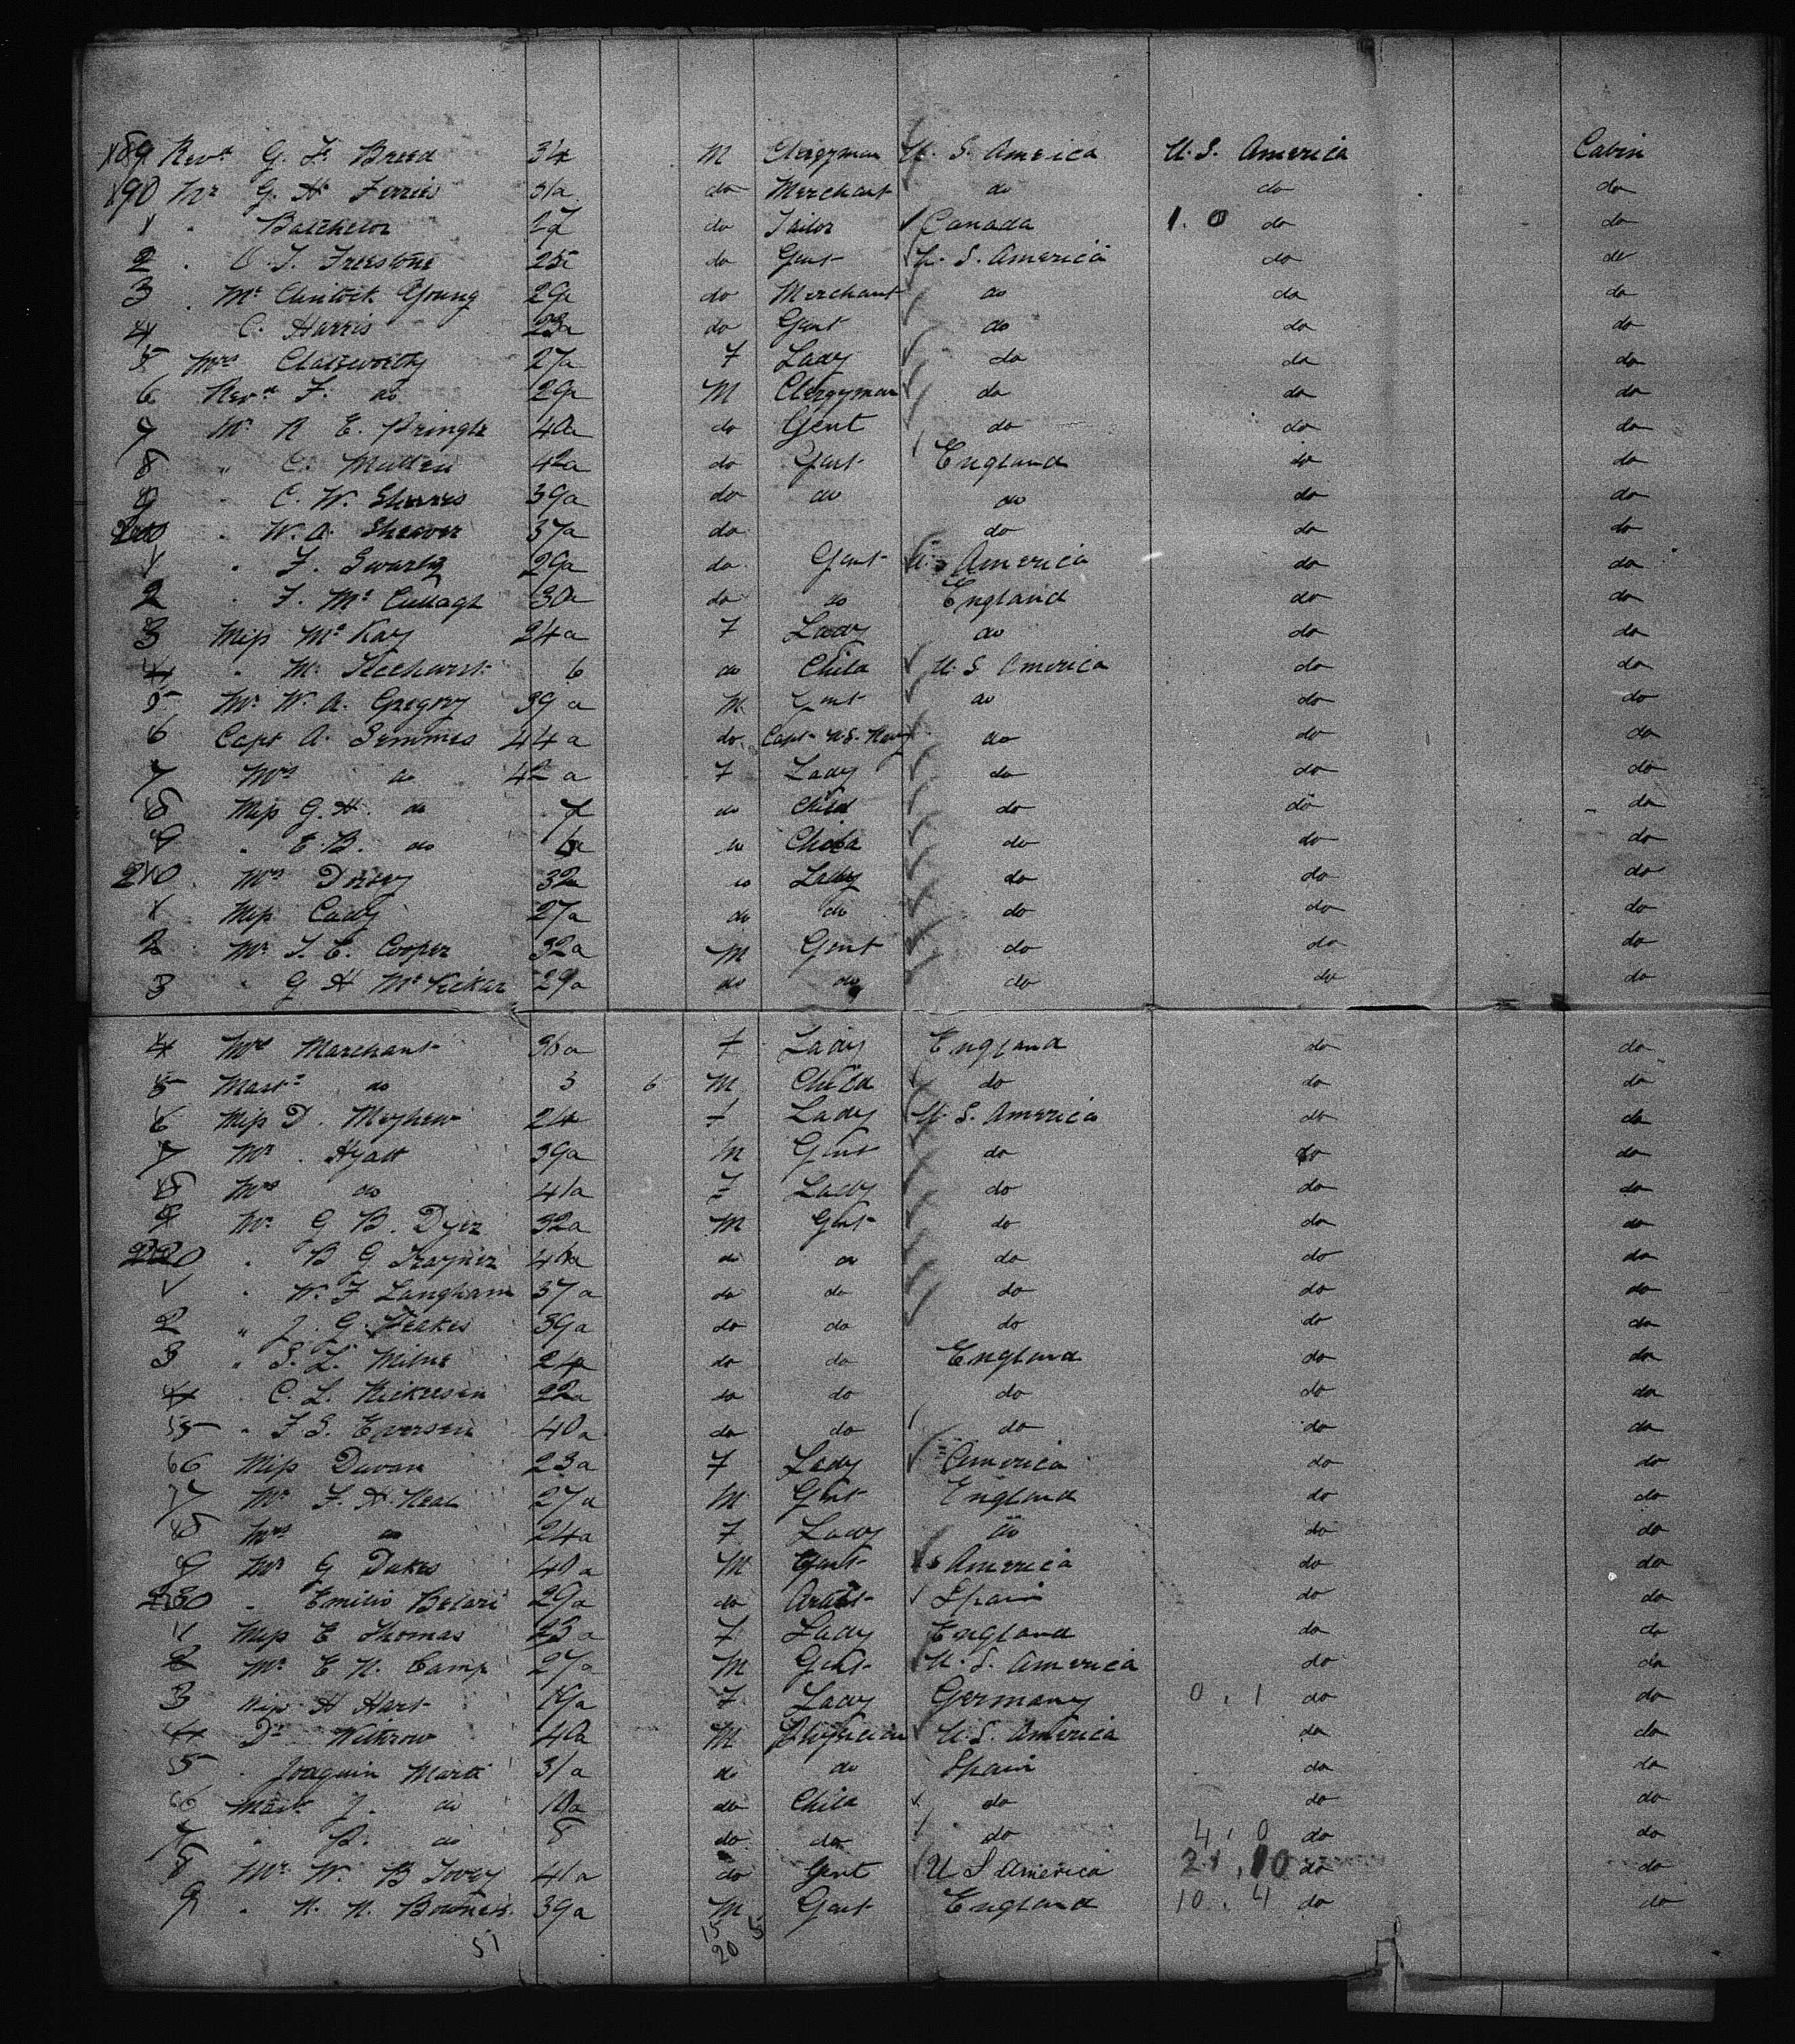 189 Revd G. F. Breed 34 M Clergyman U. S. America U. S. America Cabin
190 Mr G. H. Ferris 31a do Merchant do do do
1 " Batchelor 27 do Tailor Canada 1. 0 do do
2 " T. Freestone 25a do Gent U. S. America do do
3 " Mc Clintock Young 29a do Merchant do do do
4 C. Harris 23a do Gent do do do
5 Mrs Chatsworthy 27a F Lady do do do
6 Revd F. do 29a M Clergyman do do do
7 Mr R E. Pringle 40a do Gent do do do
8 " C. Mullen 42a do Gent England do do
9 " C. W. 39a do do do do do
200 " W. A. Shearer 37a do do do do
1 " F. Swartz 29a do Gent U.S America do do
2 " F. Mc Cullagh 30a do do England do do
3 Miss Mc Kay 24a F Lady do do do
4 " M. 6 do Child U. S. America do do
5 Mr W. A. Gregory 39a M Gent do do do
6 Capt A. Semmes 44a do Capt U.S. Navy do do do
7 Mrs do 42a F Lady do do do
8 Miss G. H. do 7 do Child do do do
9 " E. B. do do Child do do do
210 Mrs 32 do Lady do do do
1 Miss Cady 27a do do do do do
2 Mr T. E. Cooper 32a M Gent do do do
3 " G H McVickar 29a do do do do do
4 Mrs Marchant 36a F Lady England do do
5 Mastr do 3 6 M Child do do do
6 Miss D. Mayhew 24 F Lady U. S. America do do
7 Mr Hyatt 39a M Gent do do do
8 Mrs do 41a F Lady do do do
9 Mr G B. Dyer 32a M Gent do do do
220 " B G Traynier do do do do do
1 " W. F Langham 37a do do do do do
2 " J. G. Heakes 39a do do do do do
3 " S. L. Milne 24a do do England do do
4 " C. L. Nickersen 22a do do do do do
5 " F S. Eversen 40a do do do do do
6 Miss Davan 23a F Lady America do do
7 Mr F. H. Neal 27a M Gent England do do
8 Mrs do 24a F Lady do do do
9 Mr G Dukes 40a M Gent America do do
230 " Emilio Belari 29a do Artist Spain do do
1 Miss E Thomas 23a F Lady England do do
2 Mr E N. Camp 27a M Gent U. S. America do do
3 Miss H Hart 19a F Lady Germany 0 . 1 do do
4 Dr Withrow 40a M Physician U. S. America do do
5 " Joaquin Marti 31a do do Spain do do
6 Mastr J. do 10a do Child do do do
7 " R. do 8 do do do 4 . 0 do do
8 Mr W. B Tovey 41a do Gent U S America 21 . 10 do do
9 " N. N. Bowner 39a M Gent England 10 . 4 do do
51 15 5
20